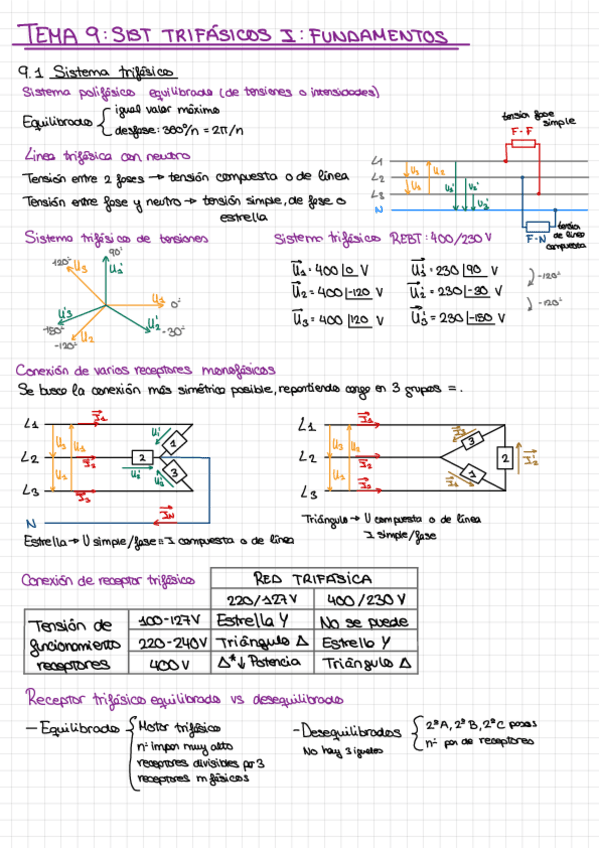 TEMA 9: SIST TRIFÁSICOS I: FUNDAMENTOS
9.1 Sistema trifásico
Sistema polifásico equilibrado (de tensiones o intensidades)
Equilibrado { igual valor máximo
desfase: 360º/n = 2π/n
Línea trifásica con neutro
Tensión entre 2 fases → tensión compuesta o de línea
Tensión entre fase y neutro → tensión simple, de fase o
estrella
tensión fase
simple
F-F
L1
L2
L3
N
U1 U2
U3
U1' U3'
U2'
F-N
tensión
de línea
compuesta
Sistema trifásico de tensiones
120º U3
90º
U1'
U1
0º
U3'
-150º
U2
-120º
U2' -30º
Sistema trifásico REBT: 400/230 V
U1 = 400 |0 V U1' = 230 |90 V
U2 = 400 |-120 V U2' = 230 |-30 V
U3 = 400 |120 V U3' = 230 |-150 V
-120º
-120º
Conexión de varios receptores monofásicos
Se busca la conexión más simétrica posible, repartiendo carga en 3 grupos =.
L1
L2
L3
N
I1
I2
I3
IN
U1'
U2'
U3'
1
2
3
Estrella → U simple/fase = I compuesta o de línea
L1
L2
L3
I1
I2
I3
U3 U2
U1
3
1
2
Triángulo → U compuesta o de línea
I simple/fase
Conexión de receptor trifásico
RED TRIFÁSICA
220/127V 400/230 V
Tensión de
funcionamiento
receptores
100-127V Estrella Y No se puede
220-240V Triángulo Δ Estrella Y
400 V Δ*↓ Potencia Triángulo Δ
Receptor trifásico equilibrado vs desequilibrado
- Equilibrado { Motor trifásico
nº impar muy alto
receptores divisibles por 3
receptores mfásicos
- Desequilibrados { 2ºA, 2ºB, 2ºC pisos
No hay 3 iguales
nº par de receptores